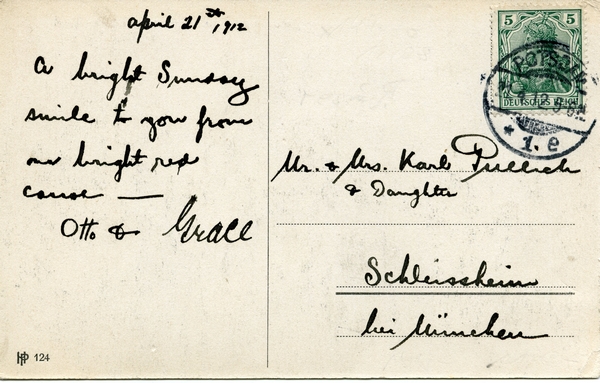 april 21st, 1912
A bright Sunday
smile to you from
our bright red
canoe —
Otto & Grace
5 5
DEUTSCHES REICH
POTSDAM
* 1. e
Mr. & Mrs. Karl
& Daughter
Schleissheim
bei München
HP 124